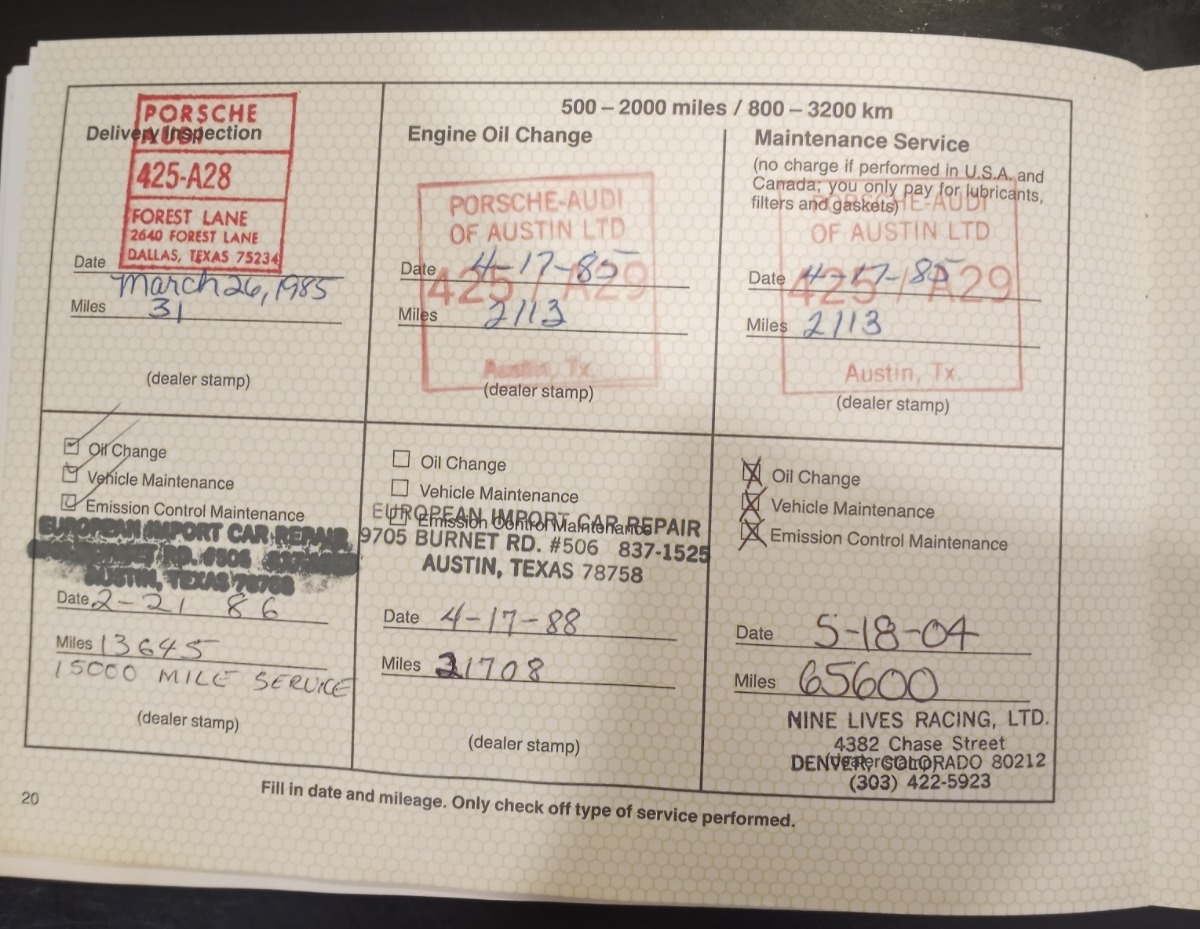 500 – 2000 miles / 800 – 3200 km
Delivery Inspection
PORSCHE
AUDI
425-A28
FOREST LANE
2640 FOREST LANE
DALLAS, TEXAS 75234
Date March 26, 1985
Miles 31
(dealer stamp)
Engine Oil Change
PORSCHE-AUDI
OF AUSTIN LTD
425 / A29
Date 4-17-85
Miles 2113
Austin, Tx.
(dealer stamp)
Maintenance Service
(no charge if performed in U.S.A. and
Canada; you only pay for lubricants,
filters and gaskets)
PORSCHE-AUDI
OF AUSTIN LTD
425 / A29
Date 4-17-85
Miles 2113
Austin, Tx.
(dealer stamp)
Oil Change
Vehicle Maintenance
Emission Control Maintenance
EUROPEAN IMPORT CAR REPAIR
BURNET RD. #506
AUSTIN, TEXAS 78758
Date 2-21 86
Miles 13645
15000 MILE SERVICE
(dealer stamp)
Oil Change
Vehicle Maintenance
Emission Control Maintenance
EUROPEAN IMPORT CAR REPAIR
9705 BURNET RD. #506 837-1525
AUSTIN, TEXAS 78758
Date 4-17-88
Miles 31708
(dealer stamp)
Oil Change
Vehicle Maintenance
Emission Control Maintenance
Date 5-18-04
Miles 65600
NINE LIVES RACING, LTD.
4382 Chase Street
(dealer stamp)
DENVER, COLORADO 80212
(303) 422-5923
Fill in date and mileage. Only check off type of service performed.
20